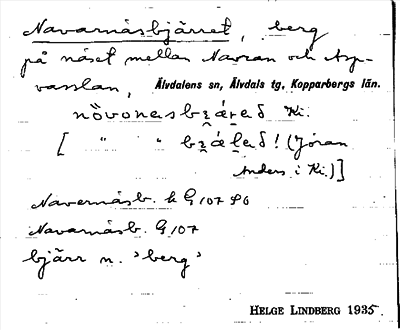 Navarnäsbjärret, berg
på näset mellan Navran och Asp-
vasslan, Älvdalens sn, Älvdals tg, Kopparbergs län.
Ki.
[ " " ! (Jöran
Anders i Ki.)]
Navernäsb. k G 107 86
Navarnäsb. G 107
bjärr n. 'berg'
HELGE LINDBERG 1935.